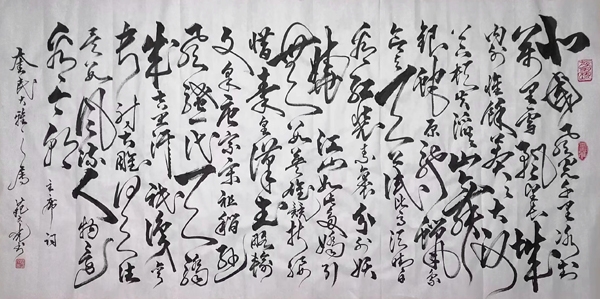 北國風光千里冰封
万里雪飘望长城
内外惟馀莽莽大河
上下顿失滔滔山舞
银蛇原驰蜡象欲
与天公试比高须晴日
看红装素裹分外妖
娆江山如此多娇引
无数英雄竞折腰
惜秦皇汉武略输
文采唐宗宋祖稍逊
风骚一代天骄
成吉思汗只识弯
弓射大雕俱往矣
数风流人物还
看今朝
主席词
大雅之属